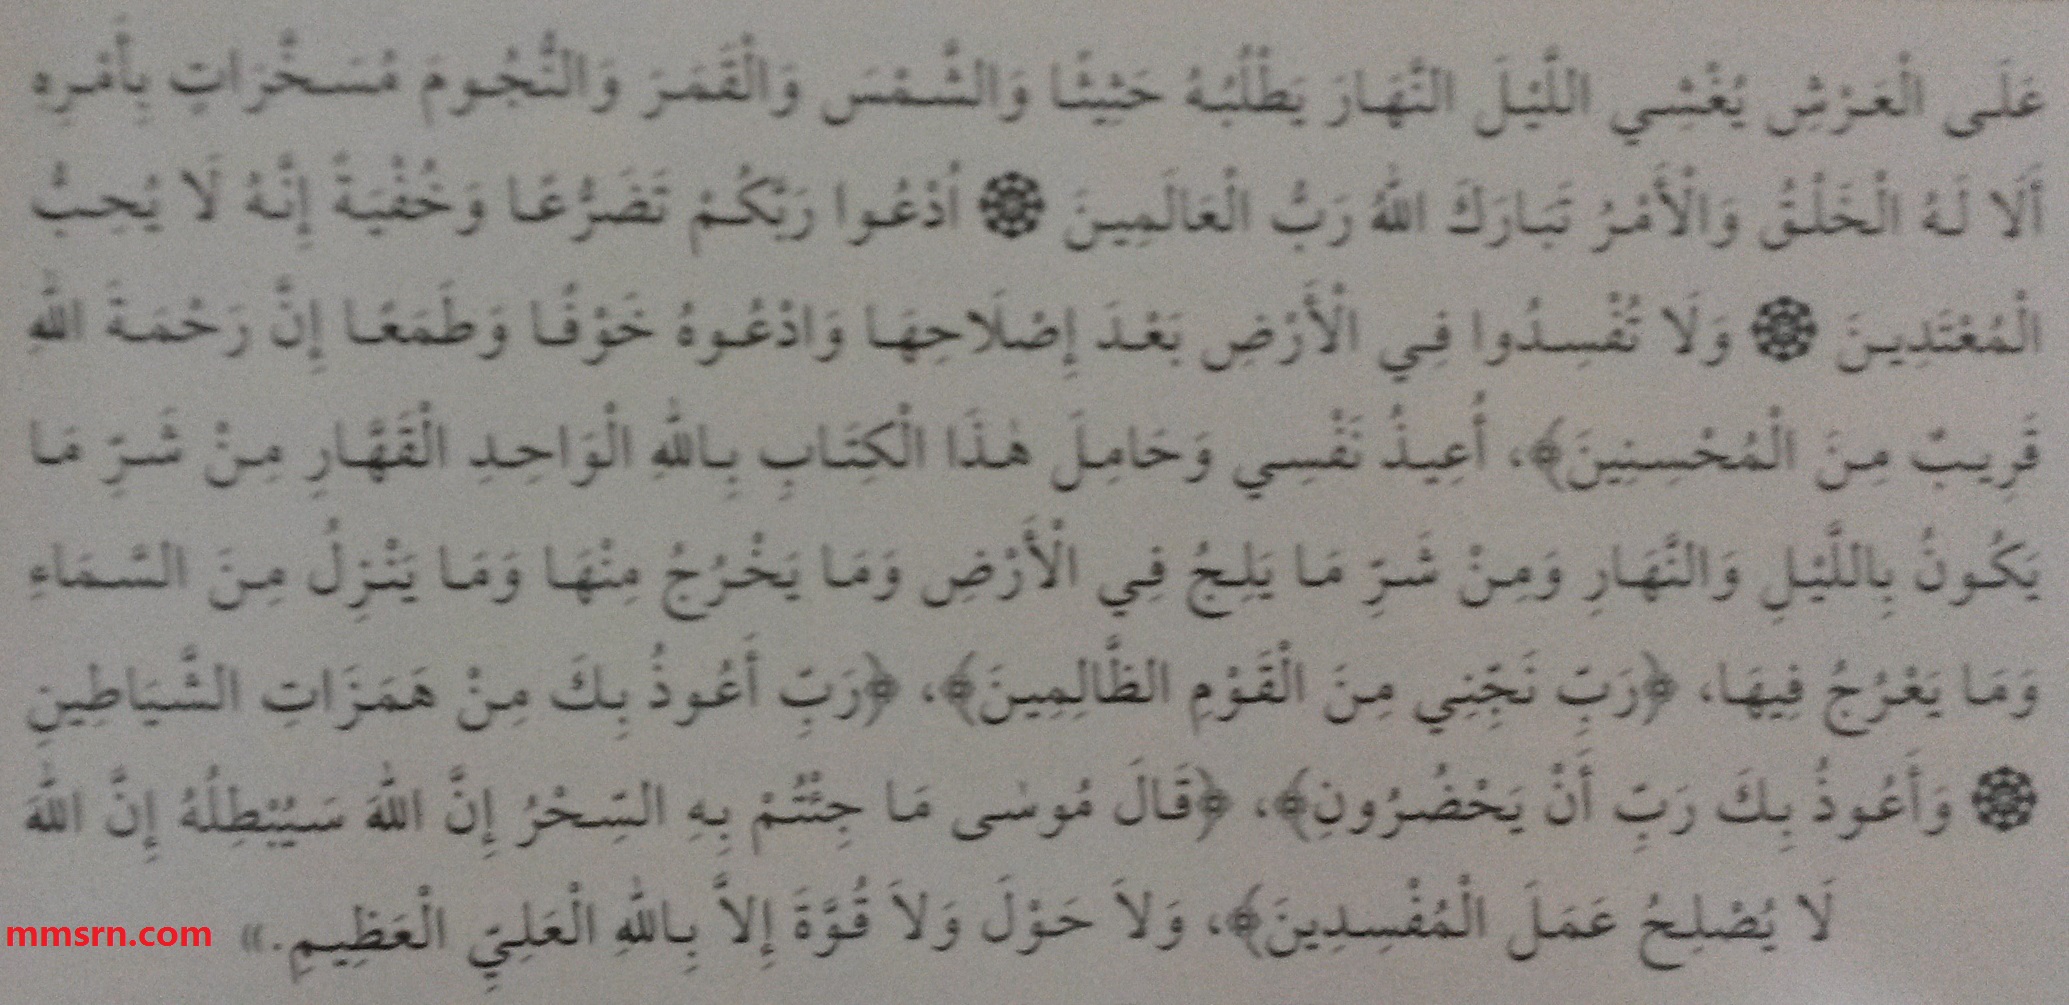 عَلَى الْعَرْشِ يُغْشِي اللَّيْلَ النَّهَارَ يَطْلُبُهُ حَثِيثًا وَالشَّمْسَ وَالْقَمَرَ وَالنُّجُومَ مُسَخَّرَاتٍ بِأَمْرِهِ
أَلَا لَهُ الْخَلْقُ وَالْأَمْرُ تَبَارَكَ اللهُ رَبُّ الْعَالَمِينَ ۞ اُدْعُوا رَبَّكُمْ تَضَرُّعًا وَخُفْيَةً إِنَّهُ لَا يُحِبُّ
الْمُعْتَدِينَ ۞ وَلَا تُفْسِدُوا فِي الْأَرْضِ بَعْدَ إِصْلَاحِهَا وَادْعُوهُ خَوْفًا وَطَمَعًا إِنَّ رَحْمَةَ اللهِ
قَرِيبٌ مِنَ الْمُحْسِنِينَ﴾، أُعِيذُ نَفْسِي وَحَامِلَ هٰذَا الْكِتَابِ بِاللهِ الْوَاحِدِ الْقَهَّارِ مِنْ شَرِّ مَا
يَكُونُ بِاللَّيْلِ وَالنَّهَارِ وَمِنْ شَرِّ مَا يَلِجُ فِي الْأَرْضِ وَمَا يَخْرُجُ مِنْهَا وَمَا يَنْزِلُ مِنَ السَّمَاءِ
وَمَا يَعْرُجُ فِيهَا، ﴿رَبِّ نَجِّنِي مِنَ الْقَوْمِ الظَّالِمِينَ﴾، ﴿رَبِّ أَعُوذُ بِكَ مِنْ هَمَزَاتِ الشَّيَاطِينِ
۞ وَأَعُوذُ بِكَ رَبِّ أَنْ يَحْضُرُونِ﴾، ﴿قَالَ مُوسٰى مَا جِئْتُمْ بِهِ السِّحْرُ إِنَّ اللهَ سَيُبْطِلُهُ إِنَّ اللهَ
لَا يُصْلِحُ عَمَلَ الْمُفْسِدِينَ﴾، وَلاَ حَوْلَ وَلاَ قُوَّةَ إِلاَّ بِاللهِ الْعَلِيِّ الْعَظِيمِ.»
mmsrn.com